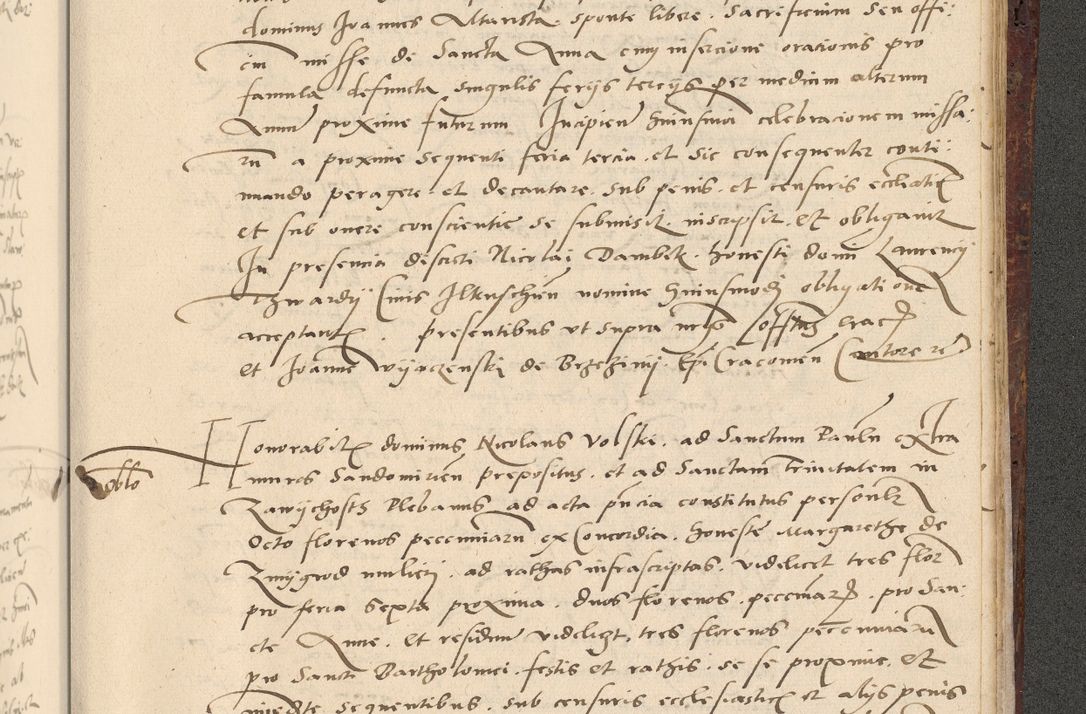 dominus Joannes Altarista sponte libere. sacrificium seu offi:
cium misse de Sancta Anna cum insercione oracionis pro
famula defuncta singulis ferijs tercijs per medium alterum
Annum proxime futurum Incipien huiusmoi celebracionem missa:
rum a proxime sequenti feria tercia et sic consequenter conti:
nuando peragere et decantare. sub penis et censuris ecclиaticis
et sub onere consciencie se submisit inscripsit et obligavit
In presencia discreti Nicolai Dambek. honesti domi Laurencij
Thwardij Civis Ilkuschien nomine huiusmodi obligationem
acceptant. presentibus ut supra
et Joanne de Brzeziny. Epi Cracovien
Honorabilis dominus Nicolaus Volski. ad Sanctum Paulum extra
muros Sandomirien prepositus. et ad Sanctam Trinitatem in
Zawychosth Plebanus ad acta pncia constitutus personlr
Octo florenos pecunniarum ex Concordia. honeste Margarethe de
Zmygrod mulieri. ad rathas infrascriptas. videlicet tres flor
pro feria sexta proxima. duos florenos. peccuniarum. pro San:
cte Anne. et residuum videlicet. tres florenos peccuniarum
pro Sancti Bartholomei. festis et rathis. se se proxime. et
sequentibus. sub censuris ecclesiasticis et alijs penis
oblo